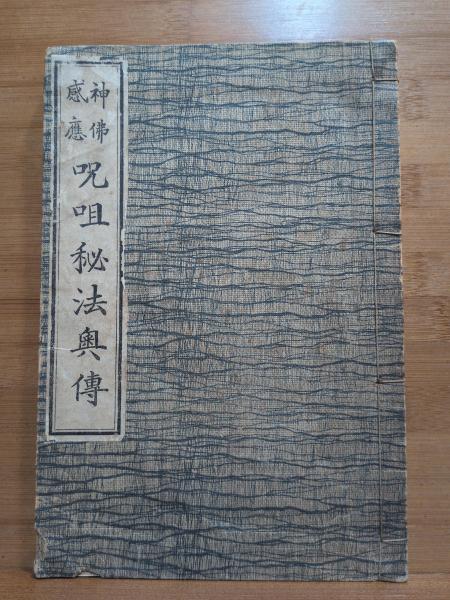 神佛
感應
呪咀秘法奥傳